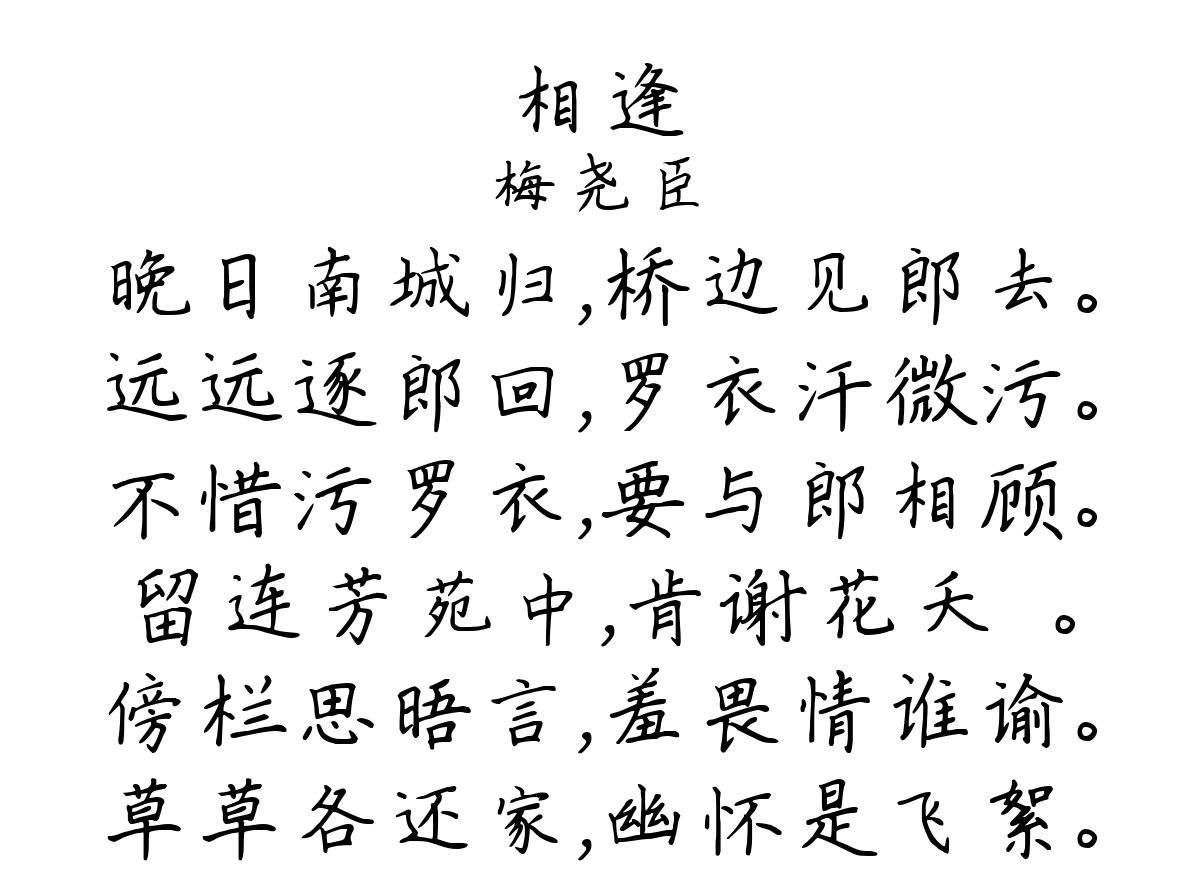 相逢
梅尧臣
晚日南城归,桥边见郎去。
远远逐郎回,罗衣汗微污。
不惜污罗衣,要与郎相顾。
留连芳苑中,肯谢花夭 。
傍栏思晤言,羞畏情谁谕。
草草各还家,幽怀是飞絮。